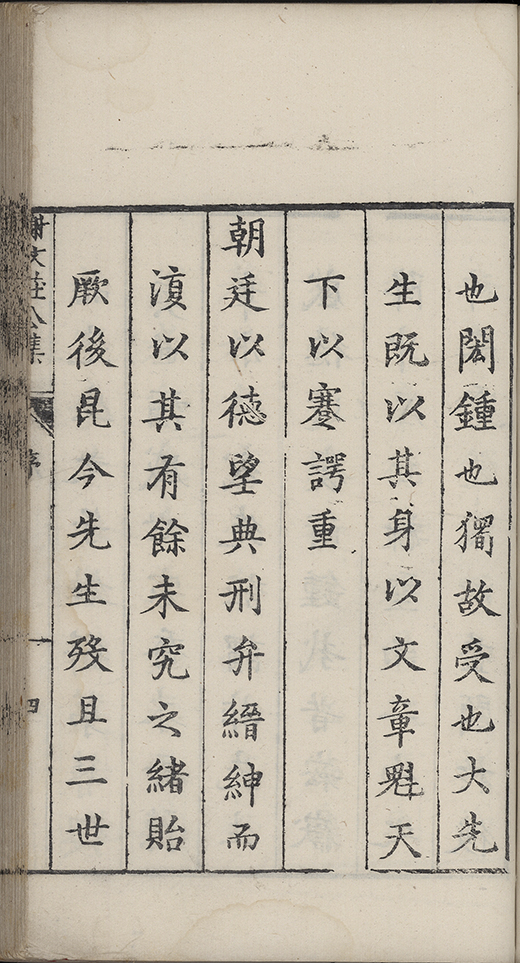 也閎鍾也獨故受也大先
生既以其身以文章魁天
下以蹇諤重
朝廷以德望典刑弁縉紳而
復以其有餘未究之緒貽
厥後昆今先生歿且三世
謝文莊公集
序
四